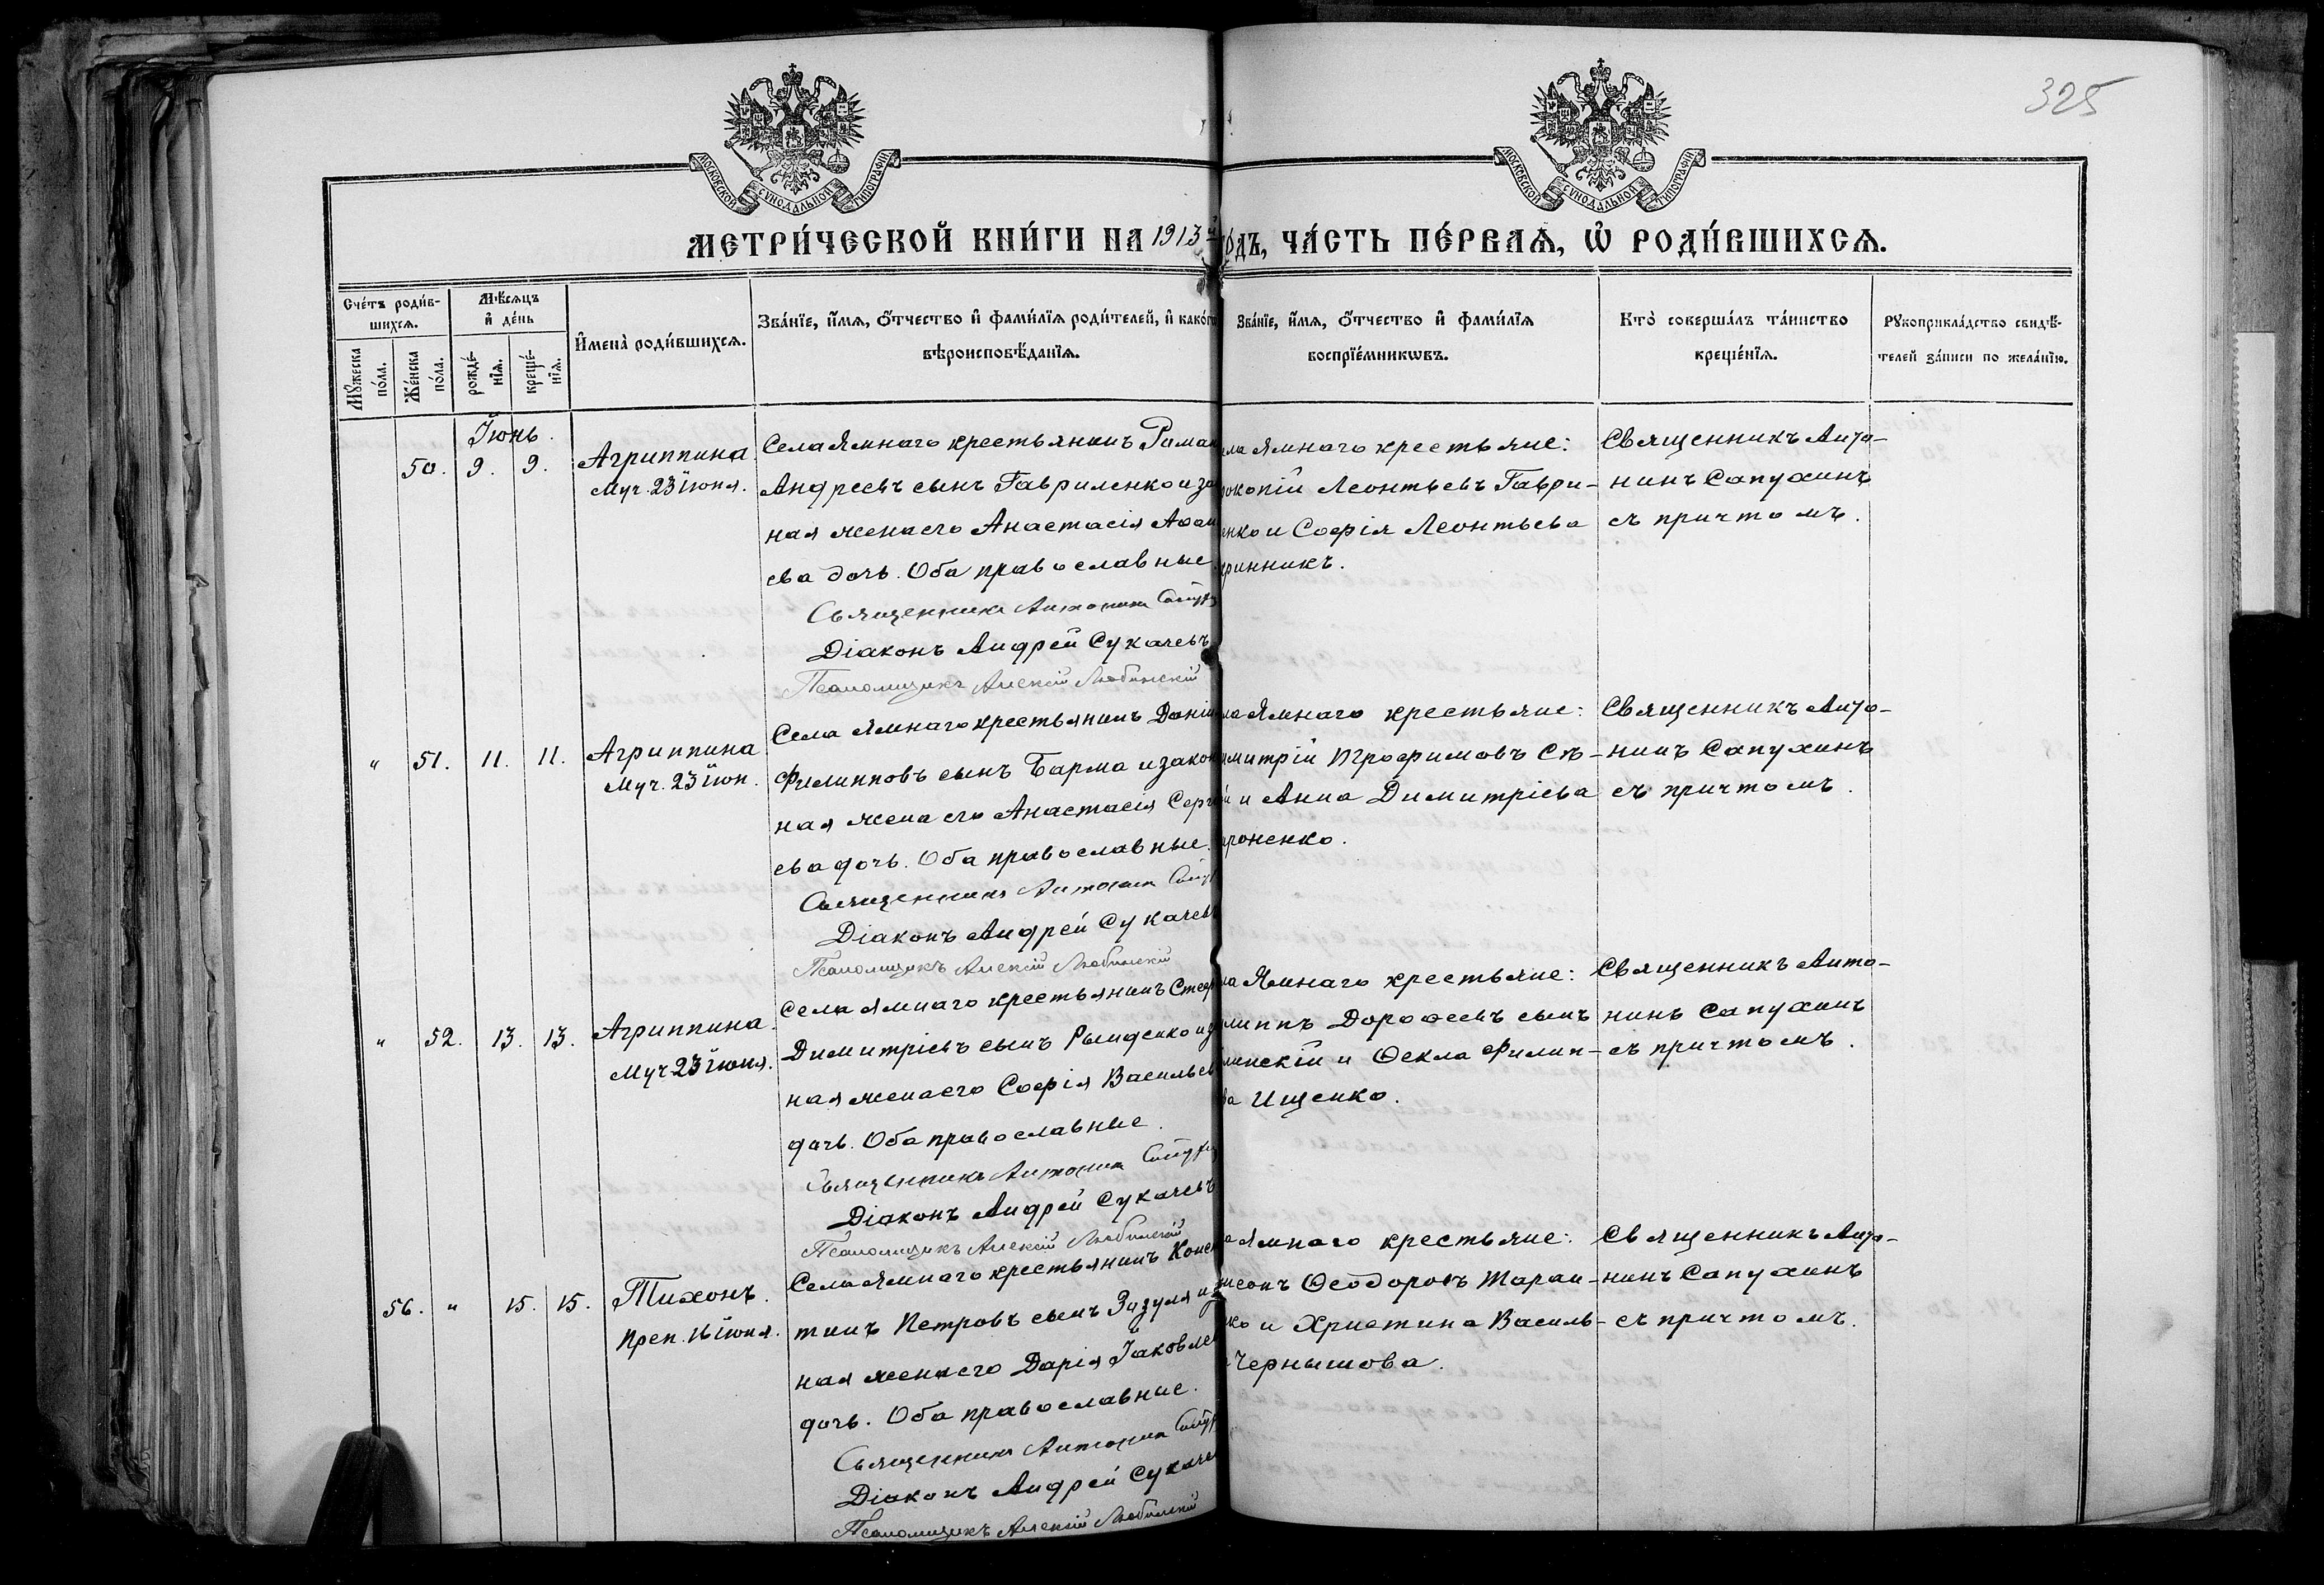 325
МОСКОВСКОЙ СУНОДАЛЬНОЙ ТИПОГРАФІИ
МОСКОВСКОЙ СУНОДАЛЬНОЙ ТИПОГРАФІИ
МЕТРИ́ЧЕСКОЙ КНИ́ГИ НА 1913й
го́дъ, ЧА́СТЬ ПЕ́РВАѦ, Ѡ҆ РОДИ́ВШИХСѦ.
Сче́тъ роди́в-
шихсѧ.
Мꙋ́жеска по́ла.
Же́нска по́ла.
Мѣ́сѧцъ
и҆ де́нь
рожде́-
нїѧ.
креще́-
нїѧ.
И҆мена̀ роди́вшихсѧ.
Зва́нїе, и҆́мѧ, о҆́тчество и҆ фами́лїѧ роди́телей, и҆ како́гѡ
вѣроисповѣ́данїѧ.
Зва́нїе, и҆́мѧ, о҆́тчество и҆ фами́лїѧ
воспрїе́мникѡвъ.
Кто̀ соверша́лъ та́инство
креще́нїѧ.
Рꙋкоприкла́дство свидѣ́-
телей за́писи по жела́нїю.
Іюнь.
50. 9. 9.
Агриппина
Муч. 23 іюня.
Села Ямнаго крестьянинъ Роман
Андреевъ сынъ Гавриленко и за
ная жена его Анастасія Афан
ева дочь. Оба православные.
Священникъ Антонин Сапух
Діаконъ Андрей Сукачевъ
Псаломщикъ Алексій Любинскій
ла Ямнаго крестьяне:
рокопій Леонтьевъ Гаври-
енко и Софія Леонтьева
ринникъ.
Священникъ Анто-
нинъ Сапухинъ
съ причтомъ.
" 51. 11. 11.
Агриппина
Муч. 23 іюн.
Села Ямнаго крестьянинъ Даніи
Филипповъ сынъ Барма и закон
ная жена его Анастасія Серг
ева дочь. Оба православные.
Священникъ Антонин Сапу
Діаконъ Андрей Сукачев
Псаломщикъ Алексій Любинскій
ла Ямнаго крестьяне:
имитрій Трофимовъ Сѣ-
й и Анна Димитріева
ароненко.
Священникъ Анто-
нинъ Сапухинъ
съ причтомъ.
" 52. 13. 13.
Агриппина
Муч 23 іюня.
Села Ямнаго крестьянинъ Стеф
Димитріевъ сынъ Рынденко и з
ная жена его Софія Васильев
дочь. Оба православные.
Священникъ Антонин Сапухи
Діаконъ Андрей Сукачевъ
Псаломщикъ Алексій Любинскій
ла Ямнаго крестьяне:
липпъ Дорофеевъ сынъ
линскій и Ѳекла Филип-
ва Ищенко.
Священникъ Анто-
нинъ Сапухинъ
съ причтомъ.
56. " 15. 15.
Тихонъ.
Преп. 16 іюня.
Села Ямнаго крестьянинъ Конс
тинъ Петровъ сынъ Зазуля и з
ная жена его Дарія Іаковле
дочь. Оба православные.
Священникъ Антонин Сапу
Діаконъ Андрей Сукаче
Псаломщикъ Алексій Любинскій
а Ямнаго крестьяне:
мсонъ Ѳеодоровъ Таран-
ко и Христина Василь-
Чернышова.
Священникъ Анто-
нинъ Сапухинъ
съ причтомъ.